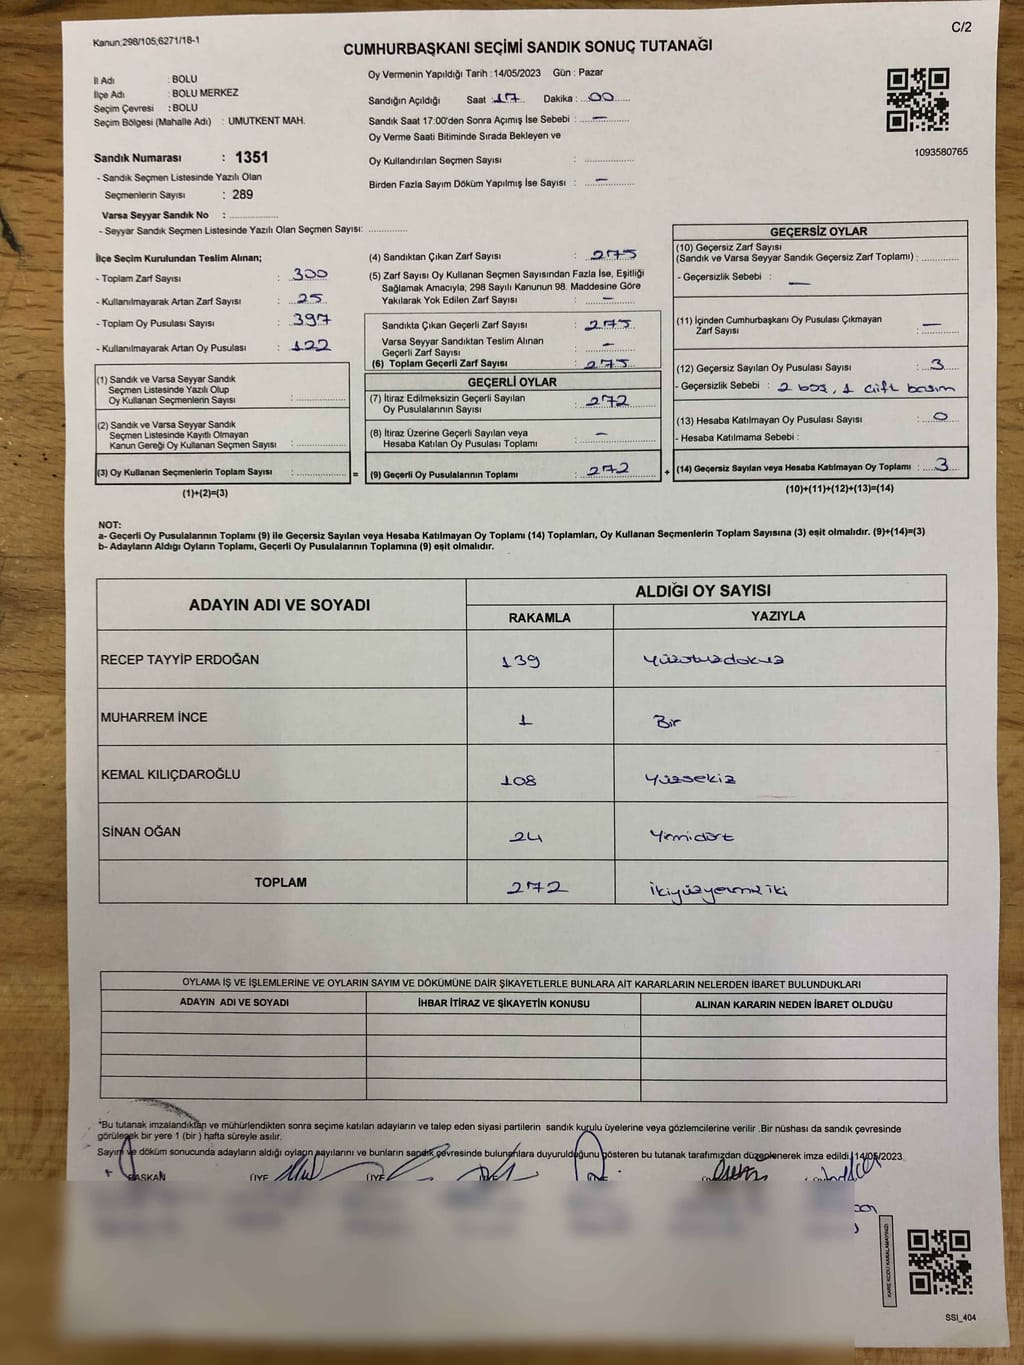 Kanun:298/105;6271/18-1
C/2
CUMHURBAŞKANI SEÇİMİ SANDIK SONUÇ TUTANAĞI
İl Adı : BOLU
İlçe Adı : BOLU MERKEZ
Seçim Çevresi : BOLU
Seçim Bölgesi (Mahalle Adı) : UMUTKENT MAH.
Sandık Numarası : 1351
- Sandık Seçmen Listesinde Yazılı Olan
Seçmenlerin Sayısı : 289
Varsa Seyyar Sandık No : ................
- Seyyar Sandık Seçmen Listesinde Yazılı Olan Seçmen Sayısı: ............
Oy Vermenin Yapıldığı Tarih : 14/05/2023 Gün : Pazar
Sandığın Açıldığı Saat : 17 Dakika : 00
Sandık Saat 17:00'den Sonra Açımış İse Sebebi : —
Oy Verme Saati Bitiminde Sırada Bekleyen ve
Oy Kullandırılan Seçmen Sayısı : ................
Birden Fazla Sayım Döküm Yapılmış İse Sayısı : —
1093580765
İlçe Seçim Kurulundan Teslim Alınan;
- Toplam Zarf Sayısı : 300
- Kullanılmayarak Artan Zarf Sayısı : 25
- Toplam Oy Pusulası Sayısı : 397
- Kullanılmayarak Artan Oy Pusulası : 122
(1) Sandık ve Varsa Seyyar Sandık
Seçmen Listesinde Yazılı Olup
Oy Kullanan Seçmenlerin Sayısı : ................
(2) Sandık ve Varsa Seyyar Sandık
Seçmen Listesinde Kayıtlı Olmayan
Kanun Gereği Oy Kullanan Seçmen Sayısı : ................
(3) Oy Kullanan Seçmenlerin Toplam Sayısı : ................ =
(1)+(2)=(3)
(4) Sandıktan Çıkan Zarf Sayısı : 275
(5) Zarf Sayısı Oy Kullanan Seçmen Sayısından Fazla İse, Eşitliği
Sağlamak Amacıyla; 298 Sayılı Kanunun 98. Maddesine Göre
Yakılarak Yok Edilen Zarf Sayısı : —
Sandıkta Çıkan Geçerli Zarf Sayısı : 275
Varsa Seyyar Sandıktan Teslim Alınan
Geçerli Zarf Sayısı : —
(6) Toplam Geçerli Zarf Sayısı : 275
GEÇERLİ OYLAR
(7) İtiraz Edilmeksizin Geçerli Sayılan
Oy Pusulalarının Sayısı : 272
(8) İtiraz Üzerine Geçerli Sayılan veya
Hesaba Katılan Oy Pusulaları Toplamı : —
(9) Geçerli Oy Pusulalarının Toplamı : 272 +
GEÇERSİZ OYLAR
(10) Geçersiz Zarf Sayısı
(Sandık ve Varsa Seyyar Sandık Geçersiz Zarf Toplamı) : ............
- Geçersizlik Sebebi : —
(11) İçinden Cumhurbaşkanı Oy Pusulası Çıkmayan
Zarf Sayısı : —
(12) Geçersiz Sayılan Oy Pusulası Sayısı : 3
- Geçersizlik Sebebi : 2 boş, 1 çift basım
(13) Hesaba Katılmayan Oy Pusulası Sayısı : 0
- Hesaba Katılmama Sebebi :
(14) Geçersiz Sayılan veya Hesaba Katılmayan Oy Toplamı : 3
(10)+(11)+(12)+(13)=(14)
NOT:
a- Geçerli Oy Pusulalarının Toplamı (9) ile Geçersiz Sayılan veya Hesaba Katılmayan Oy Toplamı (14) Toplamları, Oy Kullanan Seçmenlerin Toplam Sayısına (3) eşit olmalıdır. (9)+(14)=(3)
b- Adayların Aldığı Oyların Toplamı, Geçerli Oy Pusulalarının Toplamına (9) eşit olmalıdır.
ADAYIN ADI VE SOYADI
ALDIĞI OY SAYISI
RAKAMLA YAZIYLA
RECEP TAYYİP ERDOĞAN 139 Yüzotuzdokuz
MUHARREM İNCE 1 Bir
KEMAL KILIÇDAROĞLU 108 Yüzsekiz
SİNAN OĞAN 24 Yirmidört
TOPLAM 272
OYLAMA İŞ VE İŞLEMLERİNE VE OYLARIN SAYIM VE DÖKÜMÜNE DAİR ŞİKAYETLERLE BUNLARA AİT KARARLARIN NELERDEN İBARET BULUNDUKLARI
ADAYIN ADI VE SOYADI İHBAR İTİRAZ VE ŞİKAYETİN KONUSU ALINAN KARARIN NEDEN İBARET OLDUĞU
*Bu tutanak imzalandıktan ve mühürlendikten sonra seçime katılan adayların ve talep eden siyasi partilerin sandık kurulu üyelerine veya gözlemcilerine verilir .Bir nüshası da sandık çevresinde
görülecek bir yere 1 (bir ) hafta süreyle asılır.
Sayım ve döküm sonucunda adayların aldığı oyların sayılarını ve bunların sandık çevresinde bulunanlara duyurulduğunu gösteren bu tutanak tarafımızdan düzenlenerek imza edildi. 14/05/2023
BAŞKAN ÜYE ÜYE ÜYE ÜYE
KARE KODU KARALAMAYINIZ!
SSI_404